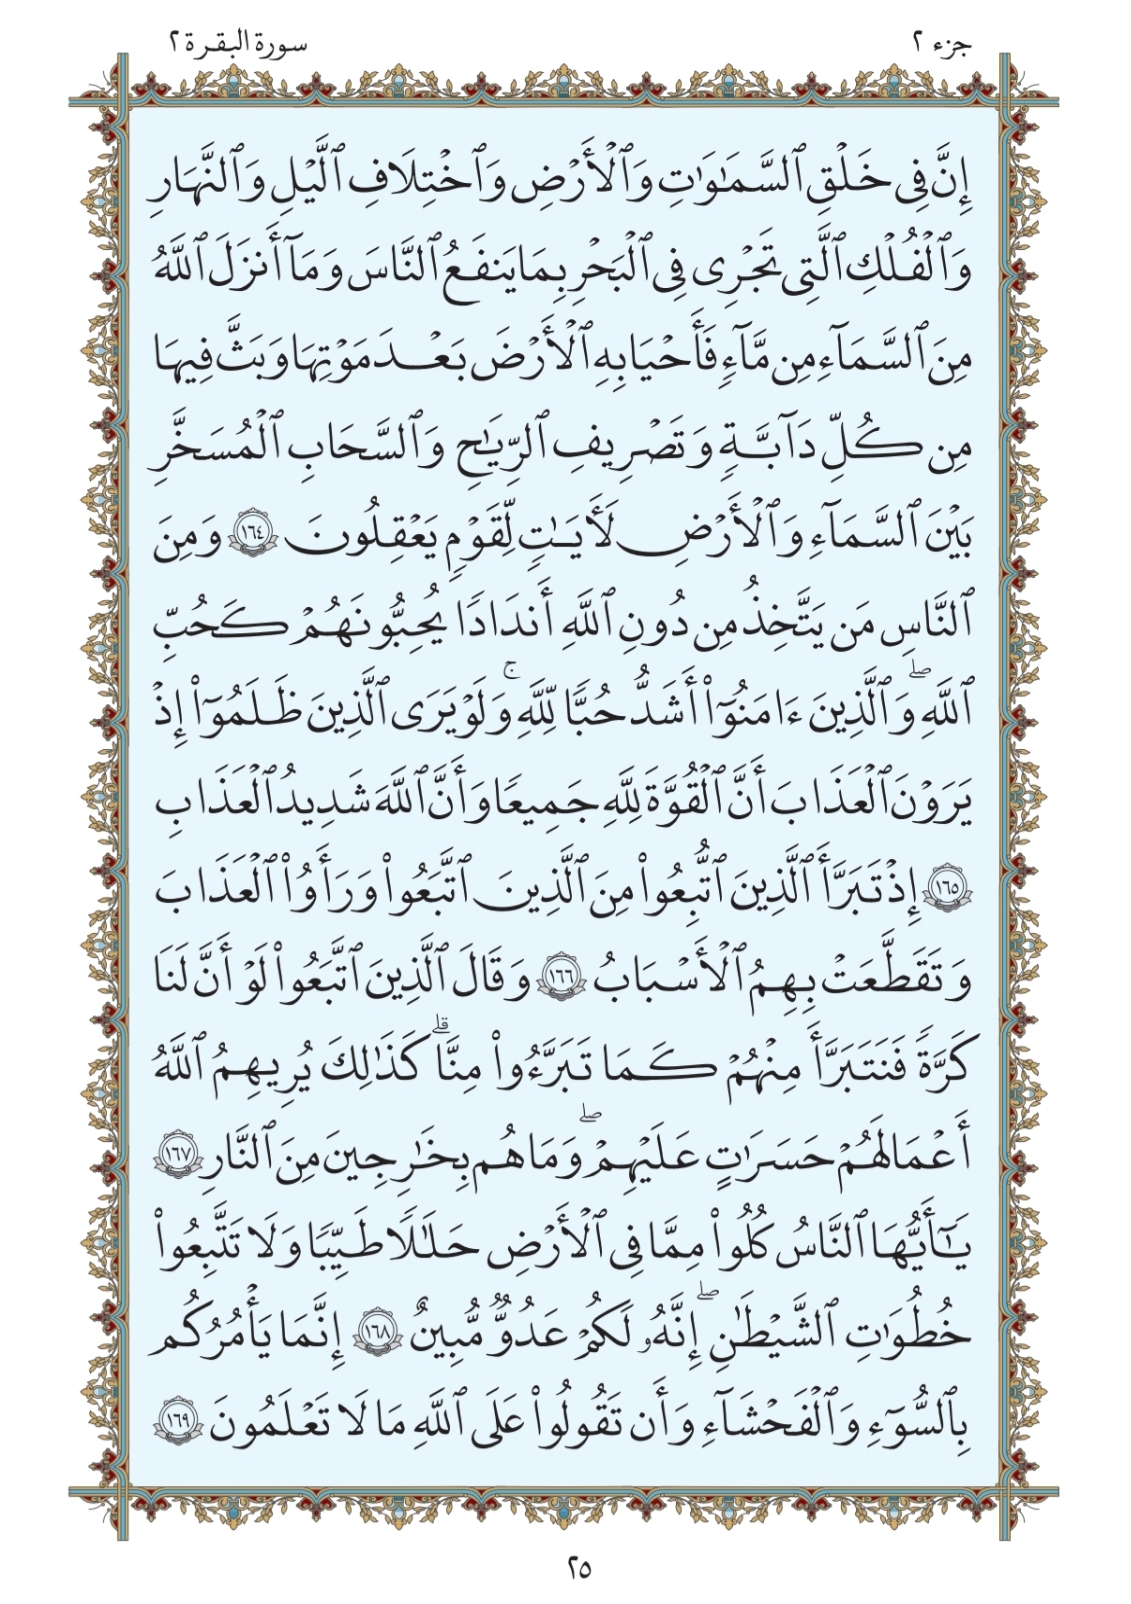 جزء ٢
سورة البقرة ٢
إِنَّ فِى خَلْقِ ٱلسَّمَـٰوَٰتِ وَٱلْأَرْضِ وَٱخْتِلَـٰفِ ٱلَّيْلِ وَٱلنَّهَارِ
وَٱلْفُلْكِ ٱلَّتِى تَجْرِى فِى ٱلْبَحْرِ بِمَا يَنفَعُ ٱلنَّاسَ وَمَآ أَنزَلَ ٱللَّهُ
مِنَ ٱلسَّمَآءِ مِن مَّآءٍ فَأَحْيَا بِهِ ٱلْأَرْضَ بَعْدَ مَوْتِهَا وَبَثَّ فِيهَا
مِن كُلِّ دَآبَّةٍ وَتَصْرِيفِ ٱلرِّيَـٰحِ وَٱلسَّحَابِ ٱلْمُسَخَّرِ
بَيْنَ ٱلسَّمَآءِ وَٱلْأَرْضِ لَأَيَـٰتٍ لِّقَوْمٍ يَعْقِلُونَ ١٦٤ وَمِنَ
ٱلنَّاسِ مَن يَتَّخِذُ مِن دُونِ ٱللَّهِ أَندَادًا يُحِبُّونَهُمْ كَحُبِّ
ٱللَّهِ ۖ وَٱلَّذِينَ ءَامَنُوٓا۟ أَشَدُّ حُبًّا لِّلَّهِ ۚ وَلَوْ يَرَى ٱلَّذِينَ ظَلَمُوٓا۟ إِذْ
يَرَوْنَ ٱلْعَذَابَ أَنَّ ٱلْقُوَّةَ لِلَّهِ جَمِيعًا وَأَنَّ ٱللَّهَ شَدِيدُ ٱلْعَذَابِ
١٦٥ إِذْ تَبَرَّأَ ٱلَّذِينَ ٱتُّبِعُوا۟ مِنَ ٱلَّذِينَ ٱتَّبَعُوا۟ وَرَأَوُا۟ ٱلْعَذَابَ
وَتَقَطَّعَتْ بِهِمُ ٱلْأَسْبَابُ ١٦٦ وَقَالَ ٱلَّذِينَ ٱتَّبَعُوا۟ لَوْ أَنَّ لَنَا
كَرَّةً فَنَتَبَرَّأَ مِنْهُمْ كَمَا تَبَرَّءُوا۟ مِنَّا ۗ كَذَٰلِكَ يُرِيهِمُ ٱللَّهُ
أَعْمَالَهُمْ حَسَرَٰتٍ عَلَيْهِمْ ۖ وَمَا هُم بِخَـٰرِجِينَ مِنَ ٱلنَّارِ ١٦٧
يَـٰٓأَيُّهَا ٱلنَّاسُ كُلُوا۟ مِمَّا فِى ٱلْأَرْضِ حَلَـٰلًا طَيِّبًا وَلَا تَتَّبِعُوا۟
خُطُوَٰتِ ٱلشَّيْطَـٰنِ ۖ إِنَّهُۥ لَكُمْ عَدُوٌّ مُّبِينٌ ١٦٨ إِنَّمَا يَأْمُرُكُم
بِٱلسُّوٓءِ وَٱلْفَحْشَآءِ وَأَن تَقُولُوا۟ عَلَى ٱللَّهِ مَا لَا تَعْلَمُونَ ١٦٩
٢٥